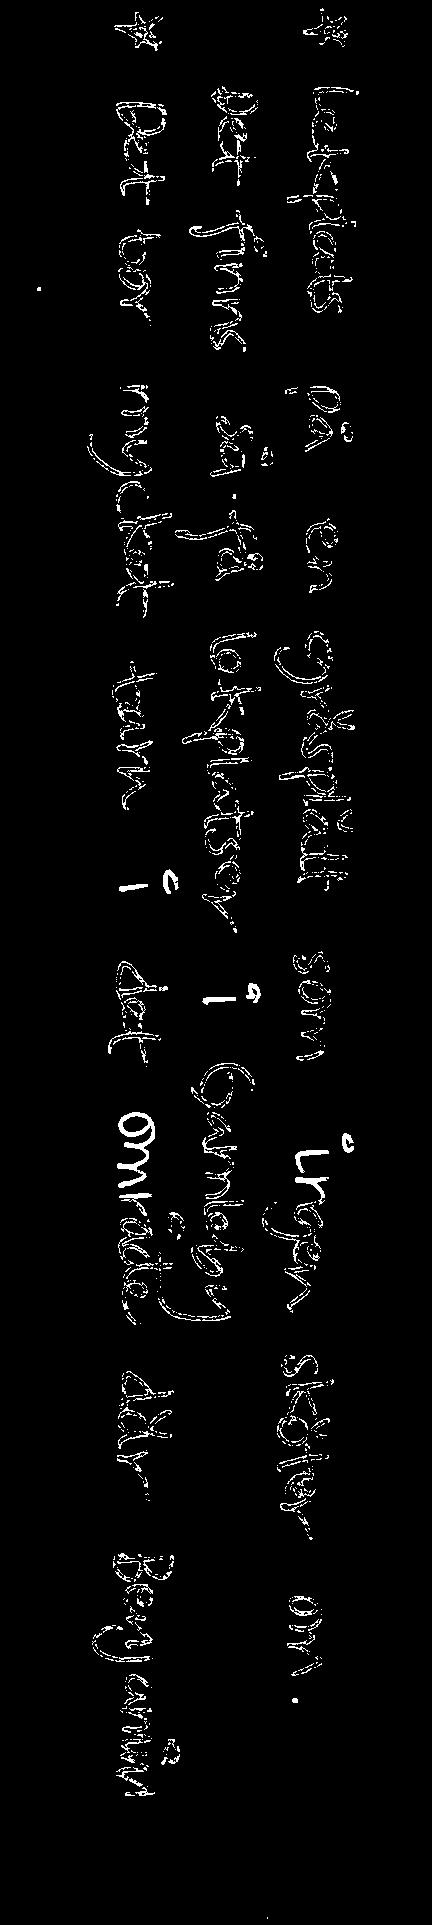 * Lekplats på en gräsplätt som ingen sköter om.
Det finns så få lekplatser i Gamleby
* Det bor mycket barn i det området där Benjamin